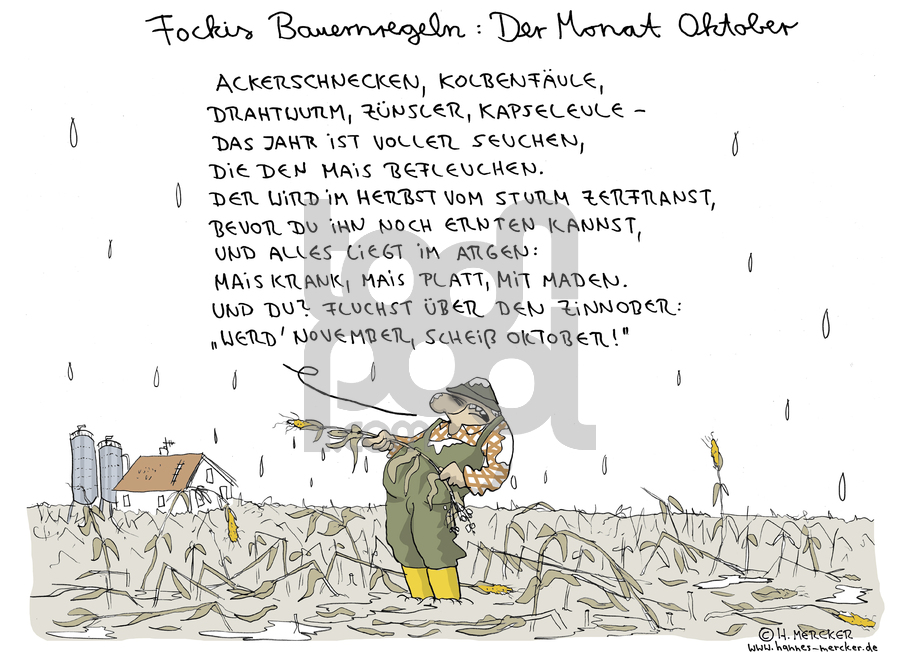 Fockis Bauernregeln: Der Monat Oktober
ACKERSCHNECKEN, KOLBENFÄULE,
DRAHTWURM, ZÜNSLER, KAPSELEULE –
DAS JAHR IST VOLLER SEUCHEN,
DIE DEN MAIS BEFLEUCHEN.
DER WIRD IM HERBST VOM STURM ZERFRANST,
BEVOR DU IHN NOCH ERNTEN KANNST,
UND ALLES LIEGT IM ARGEN:
MAIS KRANK, MAIS PLATT, MIT MADEN.
UND DU? FLUCHST ÜBER DEN ZINNOBER:
„WERD' NOVEMBER, SCHEIß OKTOBER!"
toonpool.com
© H. MERCKER
www.hannes-mercker.de